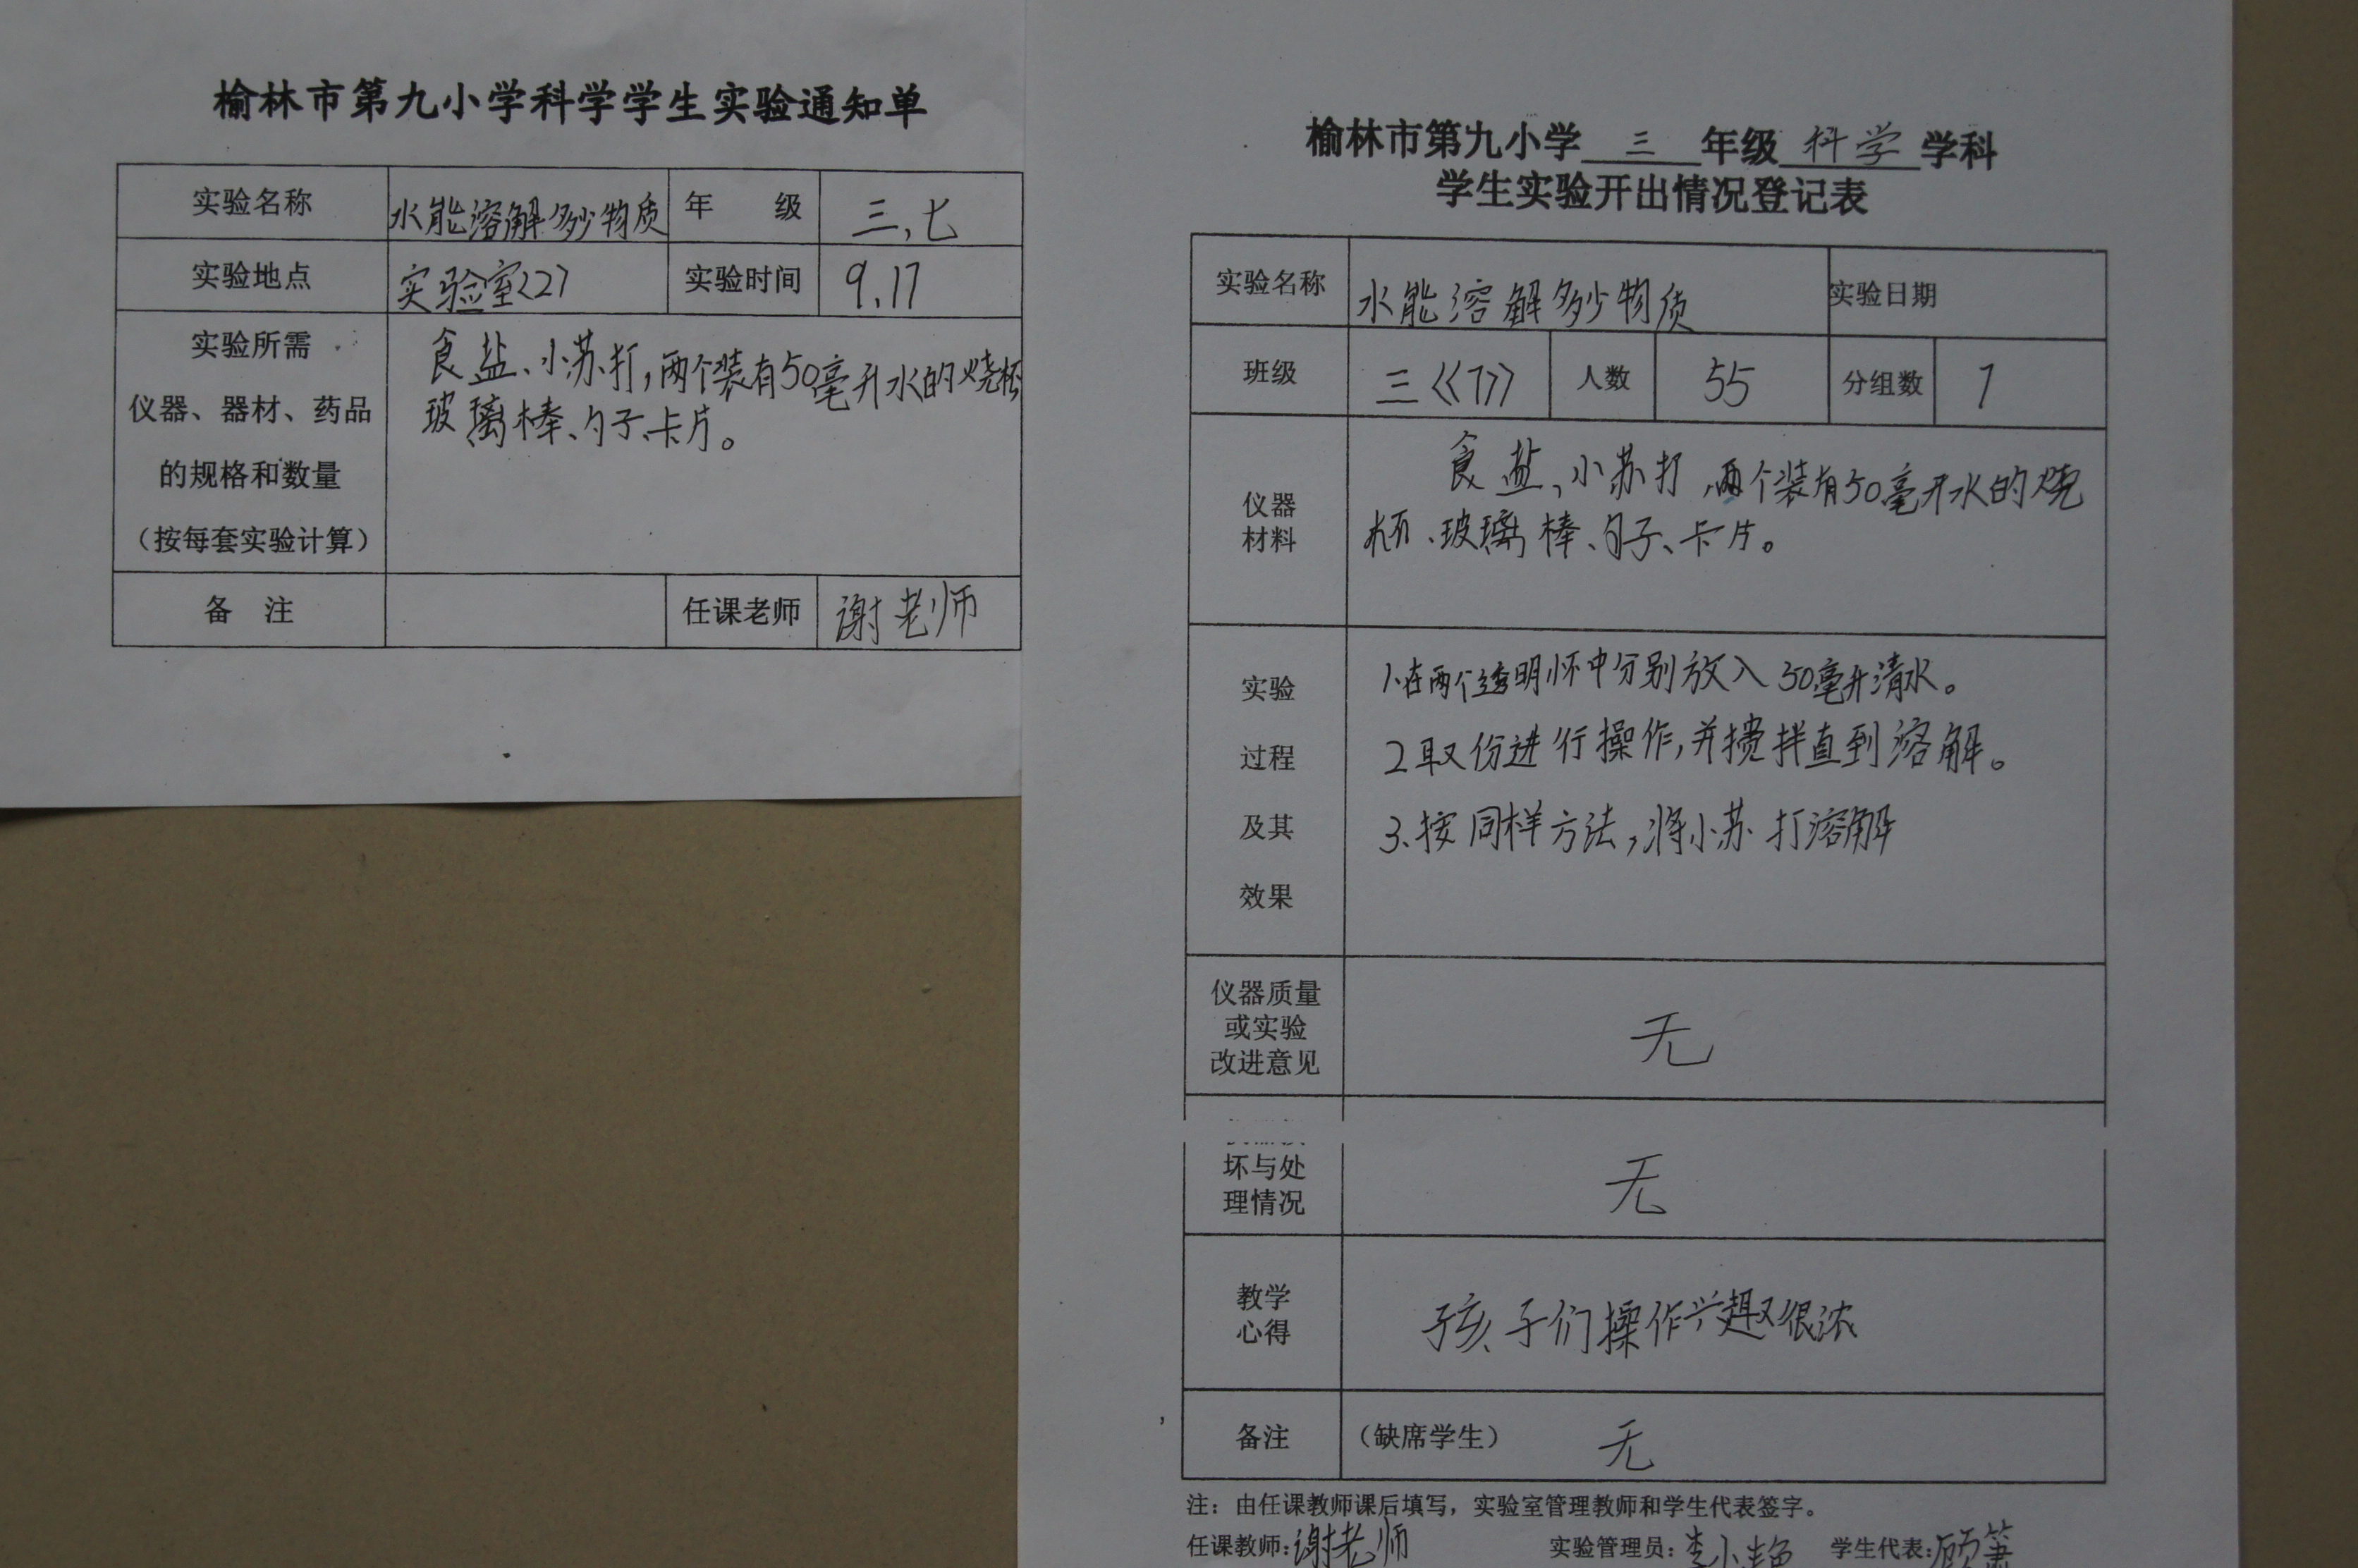 榆林市第九小学科学学生实验通知单
实验名称 水能溶解多少物质 年 级 三,七
实验地点 实验室<2> 实验时间 9.17
实验所需
仪器、器材、药品
的规格和数量
(按每套实验计算)
食盐、小苏打,两个装有50毫升水的烧杯
玻璃棒、勺子、卡片。
备 注 任课老师 谢老师
榆林市第九小学 三 年级 科学 学科
学生实验开出情况登记表
实验名称 水能溶解多少物质 实验日期
班级 三《7》 人数 55 分组数 7
仪器
材料
食盐、小苏打,两个装有50毫升水的烧
杯、玻璃棒、勺子、卡片。
实验
过程
及其
效果
1、在两个透明杯中分别放入50毫升清水。
2取份进行操作,并搅拌直到溶解。
3、按同样方法,将小苏打溶解
仪器质量
或实验
改进意见
无
坏与处
理情况
无
教学
心得
孩子们操作兴趣很浓
备注 (缺席学生) 无
注:由任课教师课后填写,实验室管理教师和学生代表签字。
任课教师:谢老师 实验管理员:李小艳 学生代表:顾箫